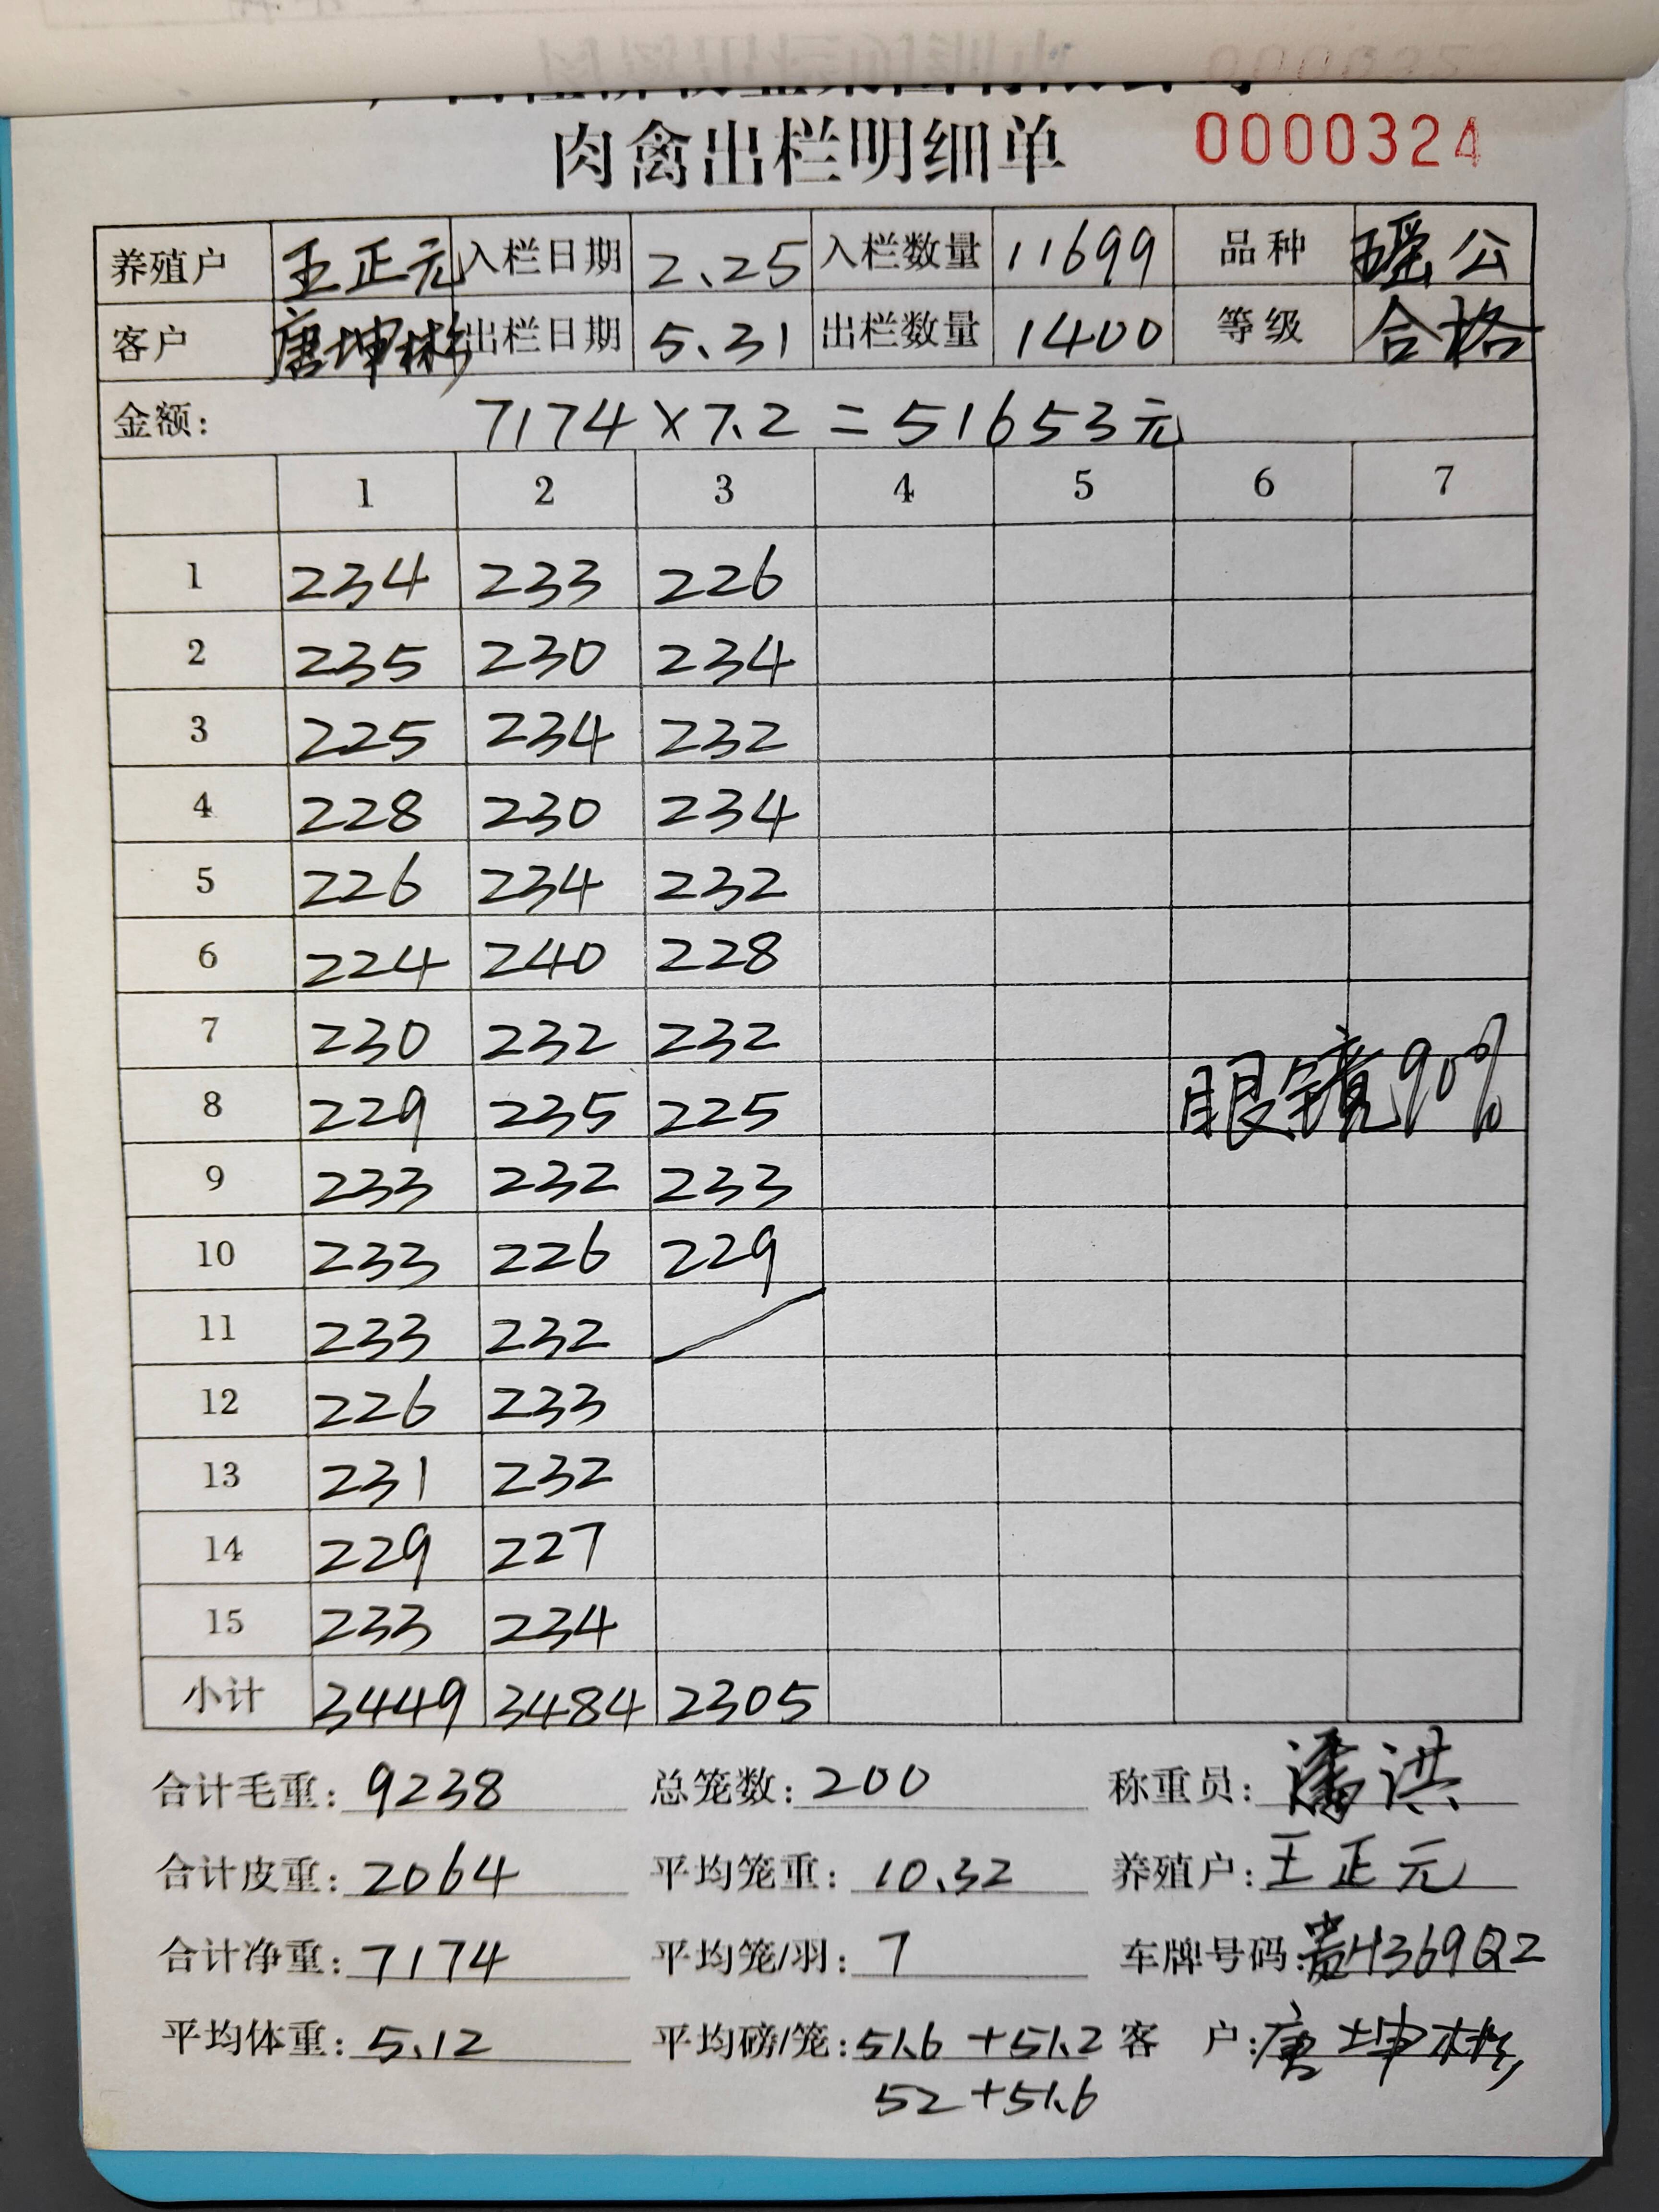 肉禽出栏明细单 0000324
养殖户 王正元 入栏日期 2.25 入栏数量 11699 品种 瑶公
客户 唐坤彬 出栏日期 5.31 出栏数量 1400 等级 合格
金额: 7174×7.2=51653元
1 2 3 4 5 6 7
1 234 233 226
2 235 230 234
3 225 234 232
4 228 230 234
5 226 234 232
6 224 240 228
7 230 232 232
8 229 235 225 眼镜90%
9 233 232 233
10 233 226 229
11 233 232
12 226 233
13 231 232
14 229 227
15 233 234
小计 3449 3484 2305
合计毛重: 9238 总笼数: 200 称重员: 潘洪
合计皮重: 2064 平均笼重: 10.32 养殖户: 王正元
合计净重: 7174 平均笼/羽: 7 车牌号码: 贵H369Q2
平均体重: 5.12 平均磅/笼: 51.6+51.2 客 户: 唐坤彬
52+51.6